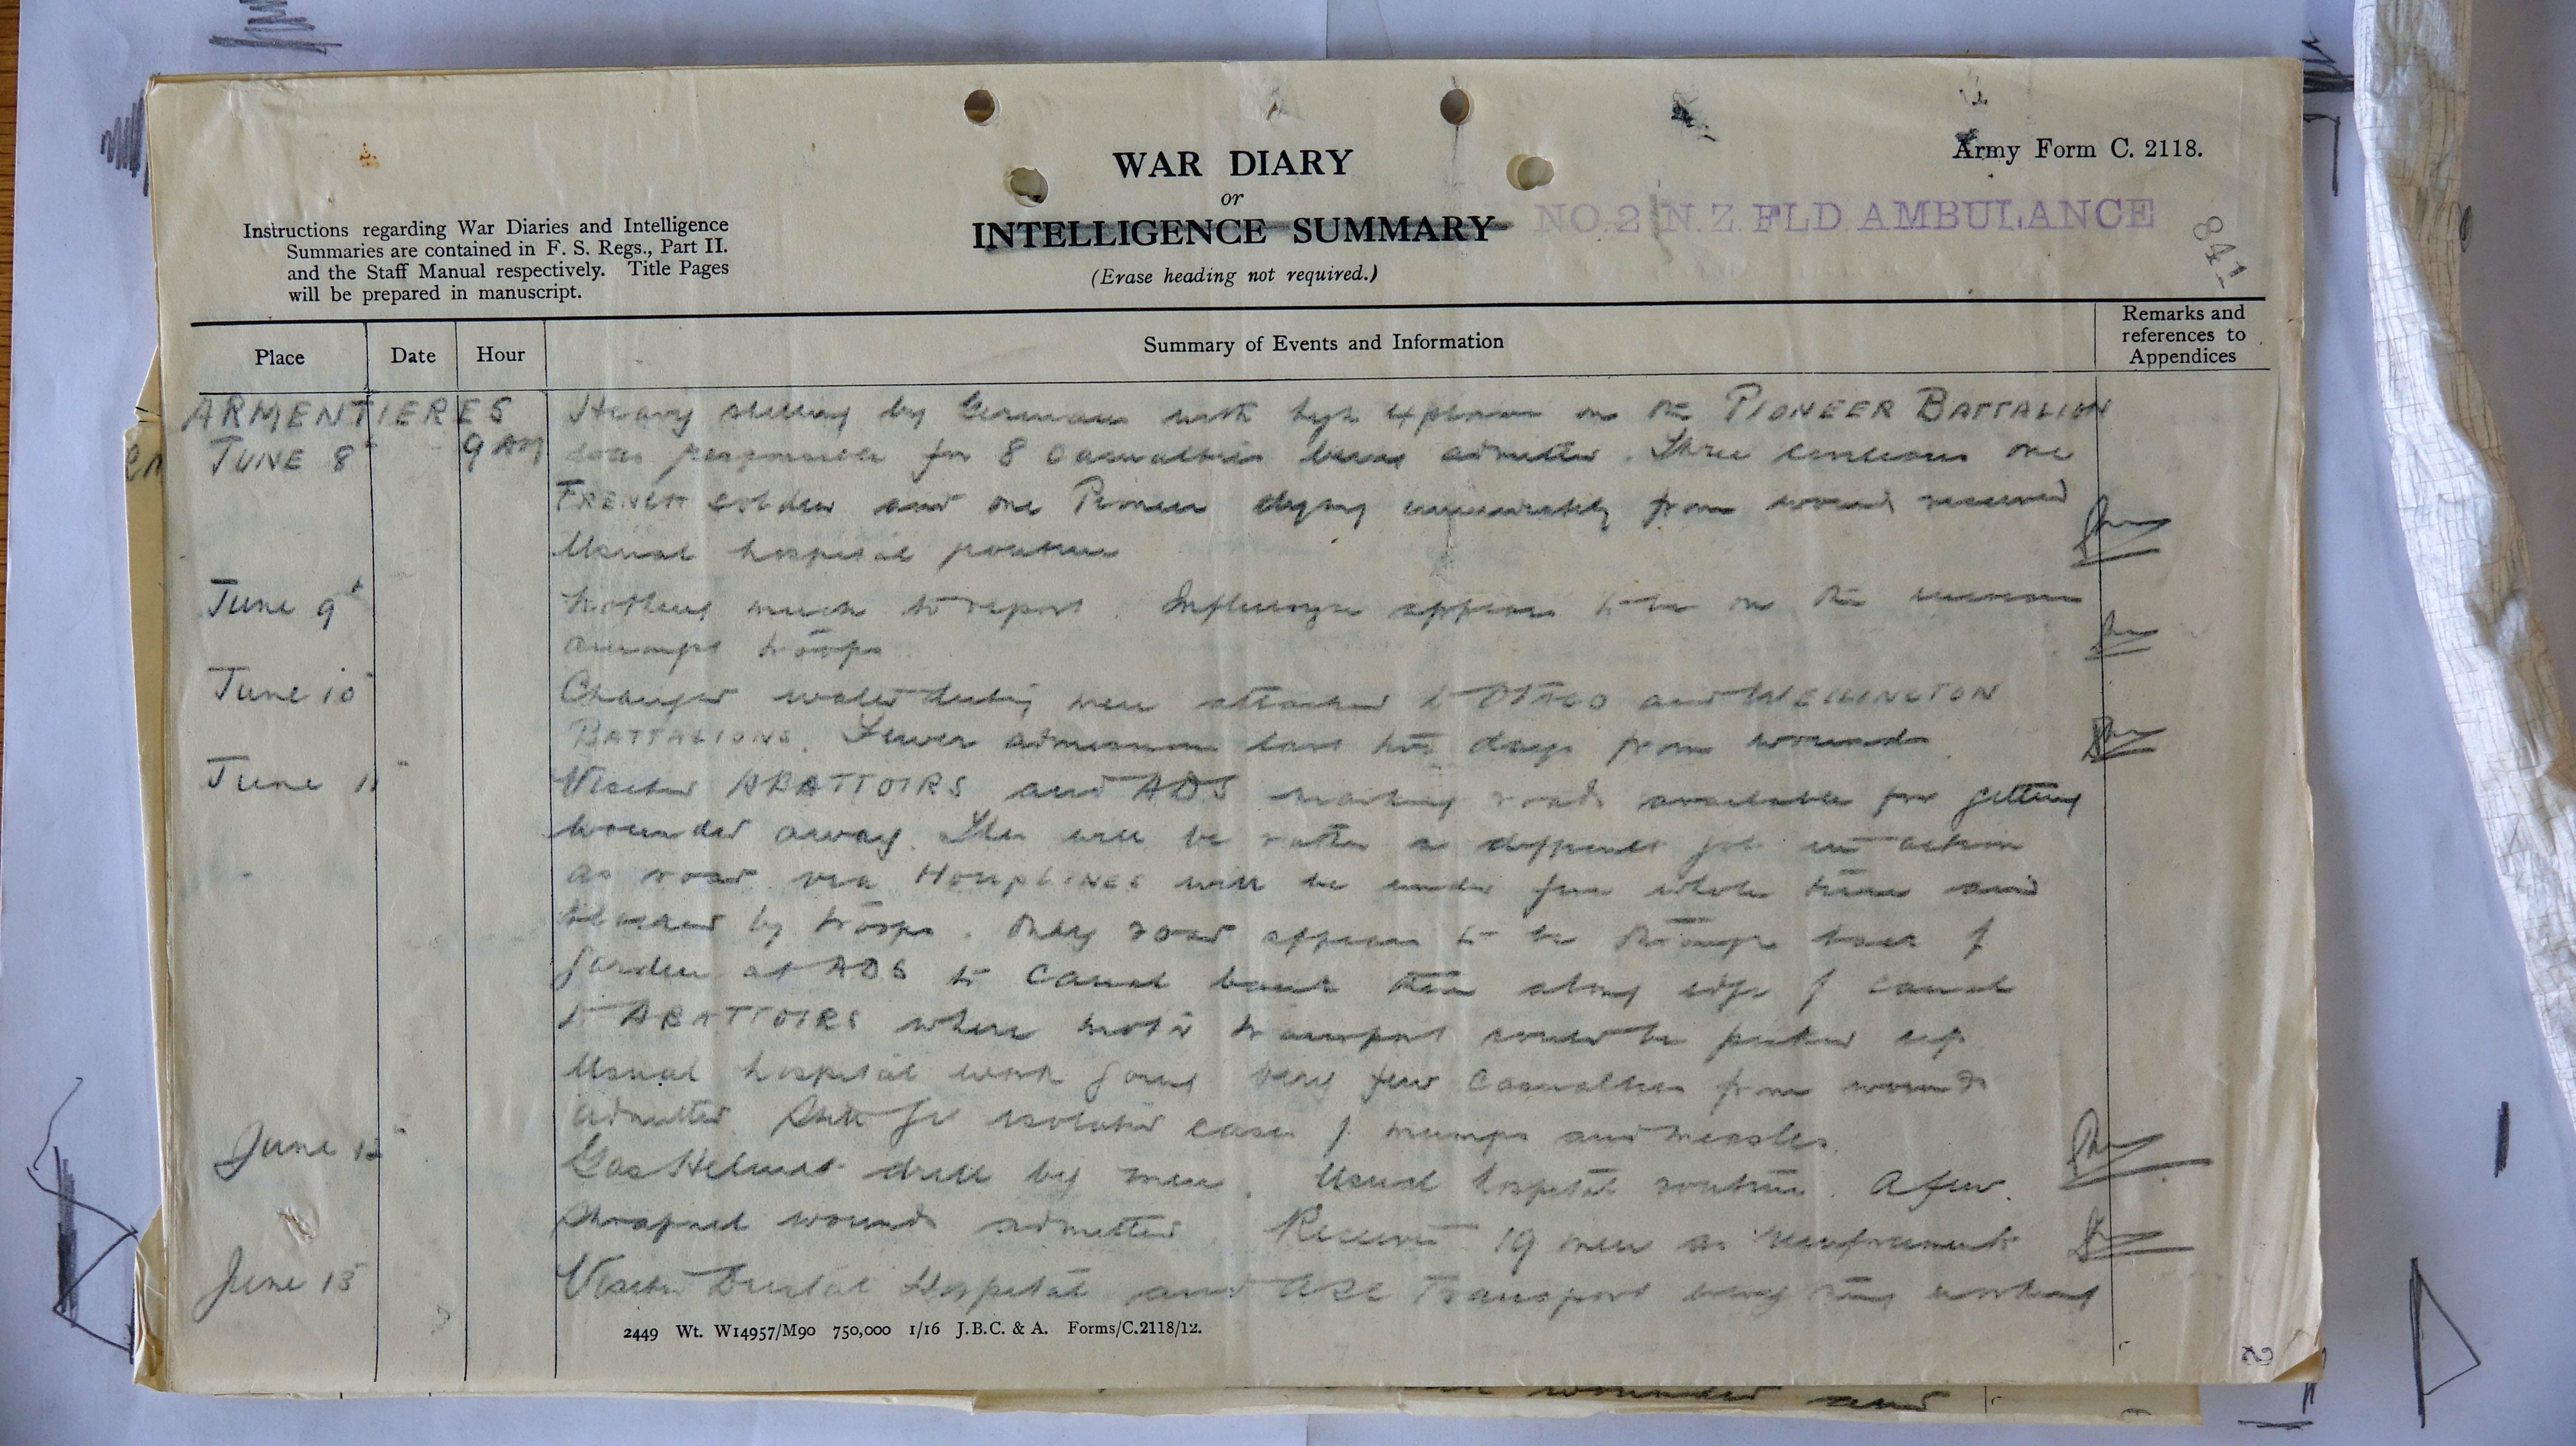 Army Form C. 2118.
WAR DIARY
or
INTELLIGENCE SUMMARY
(Erase heading not required.)
NO. 2 N.Z. FLD AMBULANCE
841
Instructions regarding War Diaries and Intelligence
Summaries are contained in F. S. Regs., Part II.
and the Staff Manual respectively. Title Pages
will be prepared in manuscript.
Place Date Hour Summary of Events and Information Remarks and
references to
Appendices
ARMENTIERES Heavy shelling by Germans with high explosive on the PIONEER BATTALION
JUNE 8th 9 AM was responsible for 8 casualties being admitted. Three civilians one
FRENCH soldier and one Pioneer dying immediately from wounds received
Usual hospital routine
June 9th Nothing much to report. Influenza appears to be on the increase
amongst troops
June 10th Changed water duty men attached to OTAGO and WELLINGTON
BATTALIONS. Fewer admissions last two days from wounds.
June 11th Visited ABATTOIRS and ADS marking roads available for getting
wounded away. This will be rather a difficult job in action
as road via HOUPLINES will be under fire whole time and
blocked by troops. Only road appears to be through back of
garden at ADS to canal bank then along edge of canal
to ABATTOIRS where motor transport could be picked up
Usual hospital work going very few casualties from wounds
admitted. Still get isolated cases of mumps and measles.
June 12th Gas Helmet drill by men. Usual hospital routine. A few.
shrapnel wounds admitted. Received 19 men as reinforcements
June 13 Visited Dental Hospital and ASC Transport every thing working
2449 Wt. W14957/M90 750,000 1/16 J.B.C. & A. Forms/C.2118/12.
2
wounded and